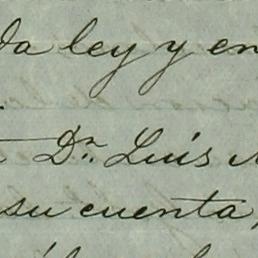 da ley y en
Dn. Luis
su cuenta,